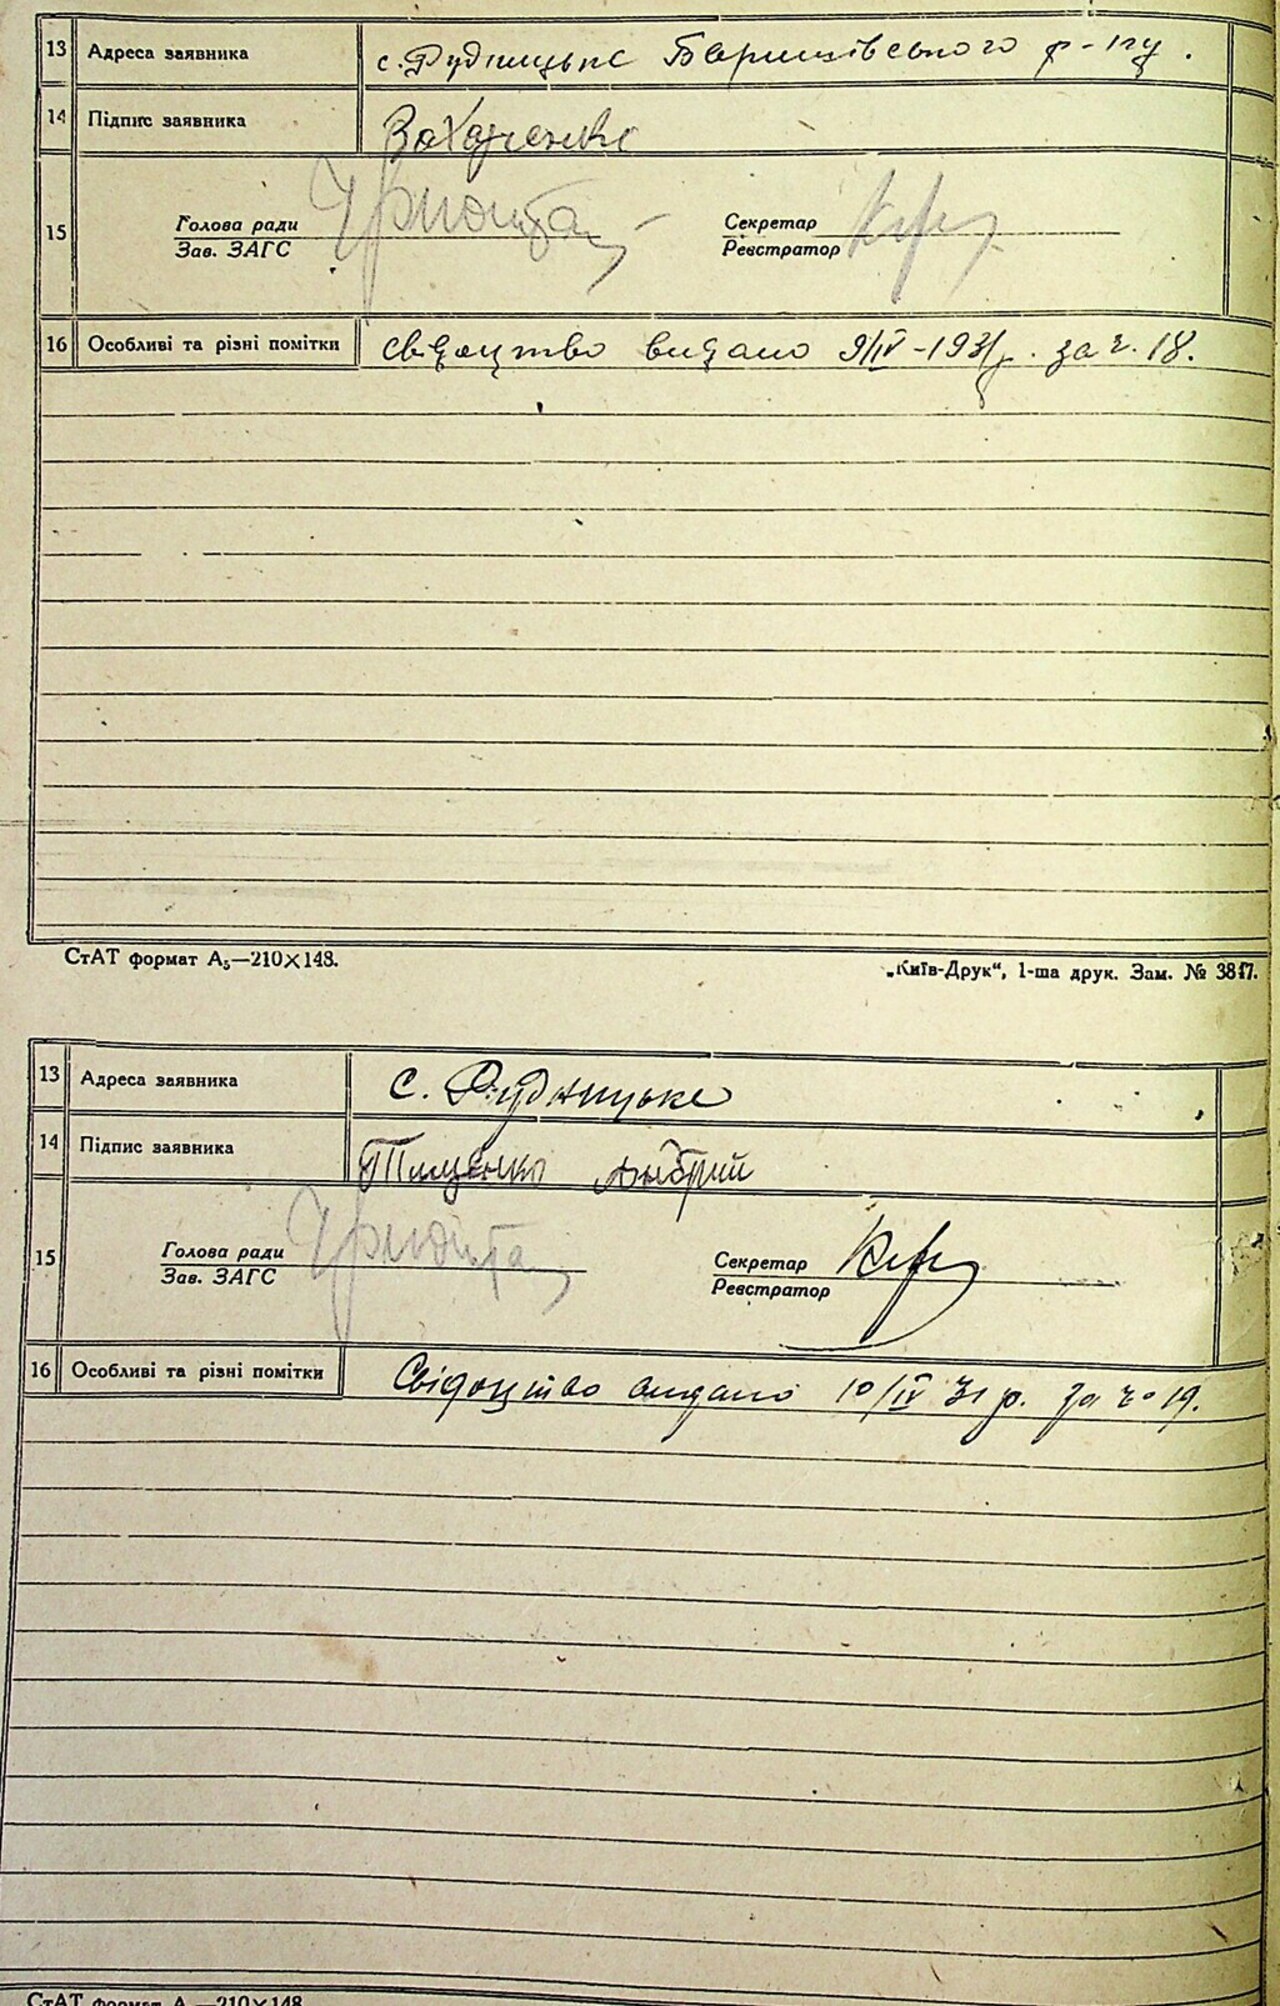 13 Адреса заявника с. Рудницьке Баришівського р-ну.
14 Підпис заявника Захарченко
15 Голова ради Секретар
Зав. ЗАГС Реєстратор
16 Особливі та різні помітки Свідоцтво видано 9/IV-1931 р. за ч. 18.
СтАТ формат А5—210×148.
„Київ-Друк“, 1-ша друк. Зам. № 3817.
13 Адреса заявника с. Рудницьке
14 Підпис заявника Тищенко Андрій
15 Голова ради Секретар
Зав. ЗАГС Реєстратор
16 Особливі та різні помітки Свідоцтво видано 10/IV 31 р. за ч. 19.
СтАТ формат А —210×148